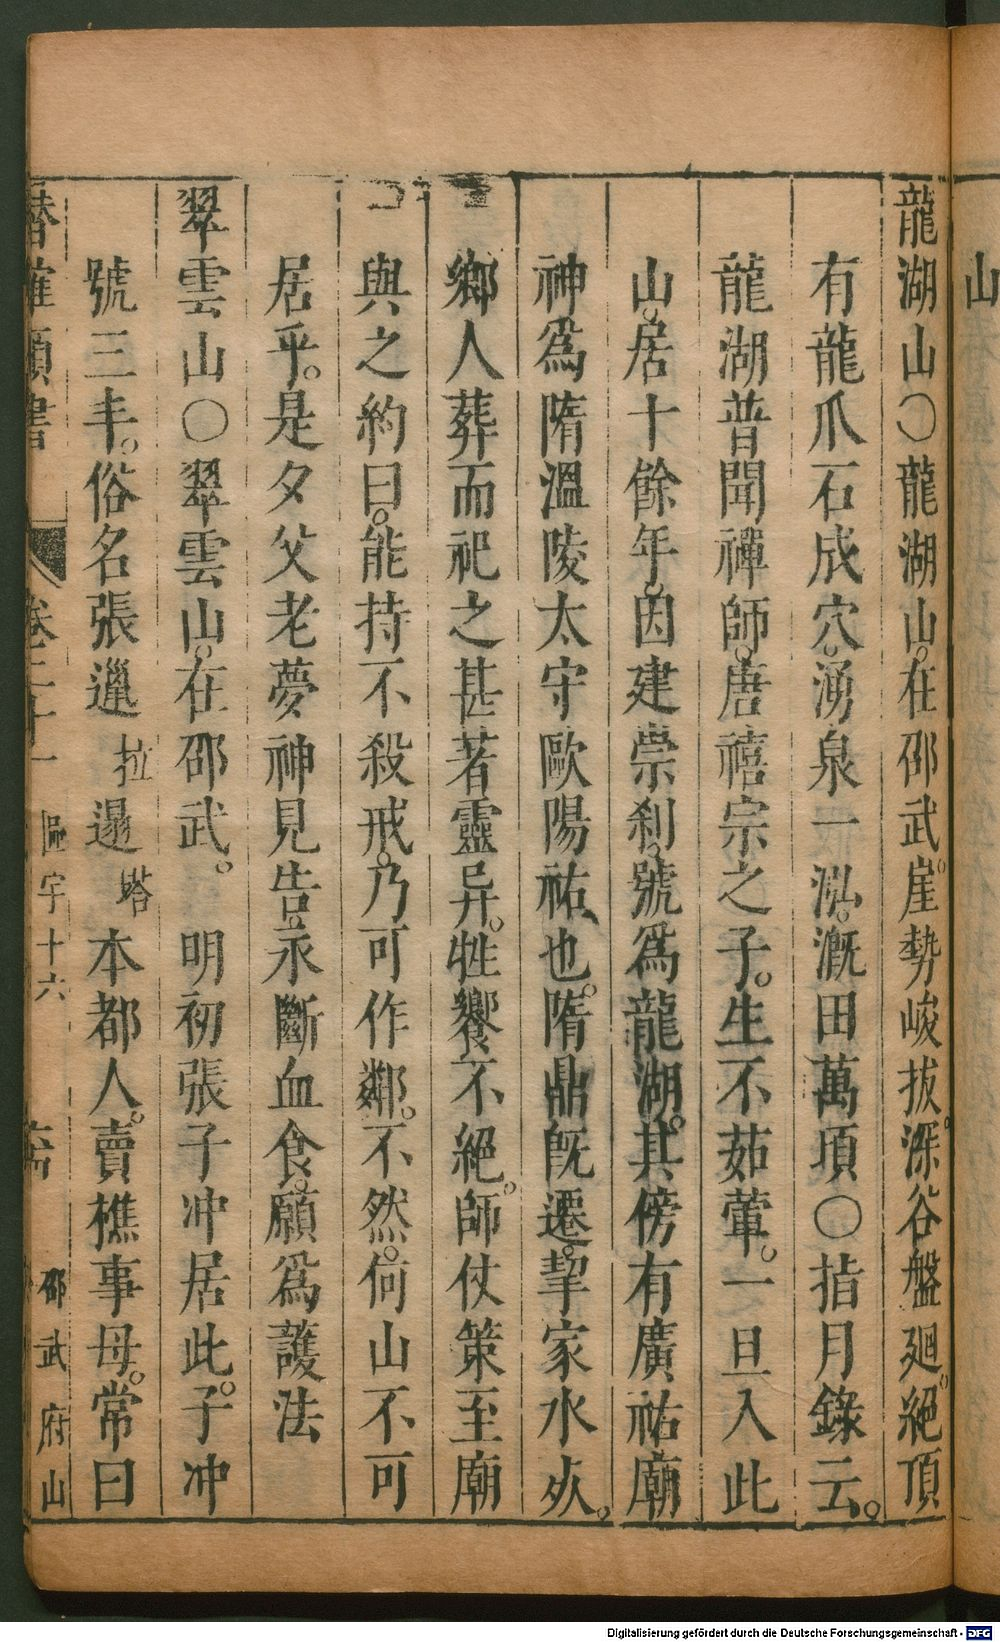 山
龍湖山○龍湖山。在邵武。崖勢峻拔。深谷盤廻。絕頂
有龍爪石成穴。湧泉一泓。溉田萬頃○指月錄云。
龍湖普聞禪師。唐禧宗之子。生不茹葷。一旦入此
山。居十餘年。因建崇剎。號為龍湖。其傍有廣祐廟
神為隋溫陵太守歐陽祐也。隋鼎旣遷。挈家水死。
鄉人葬而祀之甚著靈异。牲饗不絕。師仗策至廟
與之約曰。能持不殺戒。乃可作鄰。不然。何山不可
居乎。是夕父老夢神見告。永斷血食。願為護法
翠雲山○翠雲山。在邵武。明初張子冲居此。子冲
號三丰。俗名張邋拉遢塔本都人。賣樵事母。常曰
潛確類書 卷二十一 區宇十六 邵武府山
Digitalisierung gefördert durch die Deutsche Forschungsgemeinschaft - DFG